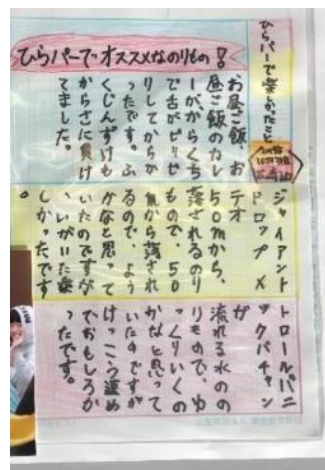 ひらパーで楽しかったこと
ひらパーでオススメなのりもの!
お昼ご飯、お
昼ご飯のカレ
ーが、からくち
で舌がピリピ
リしてからか
ったです。ふ
くじんずけも
からさに負け
てました。
ジャイアント
ドロップメ
テオ
50mから、
落されるのり
もので、50
mから落され
るので、よう
かなと思って
いたのですが
、いがいた楽
しかったです
。
トロールパニ
ックバチャン
が
流れる水のの
りもので、ゆ
っくりいくの
かなと思って
いたのですが
けっこう速め
でおもしろか
ったです。